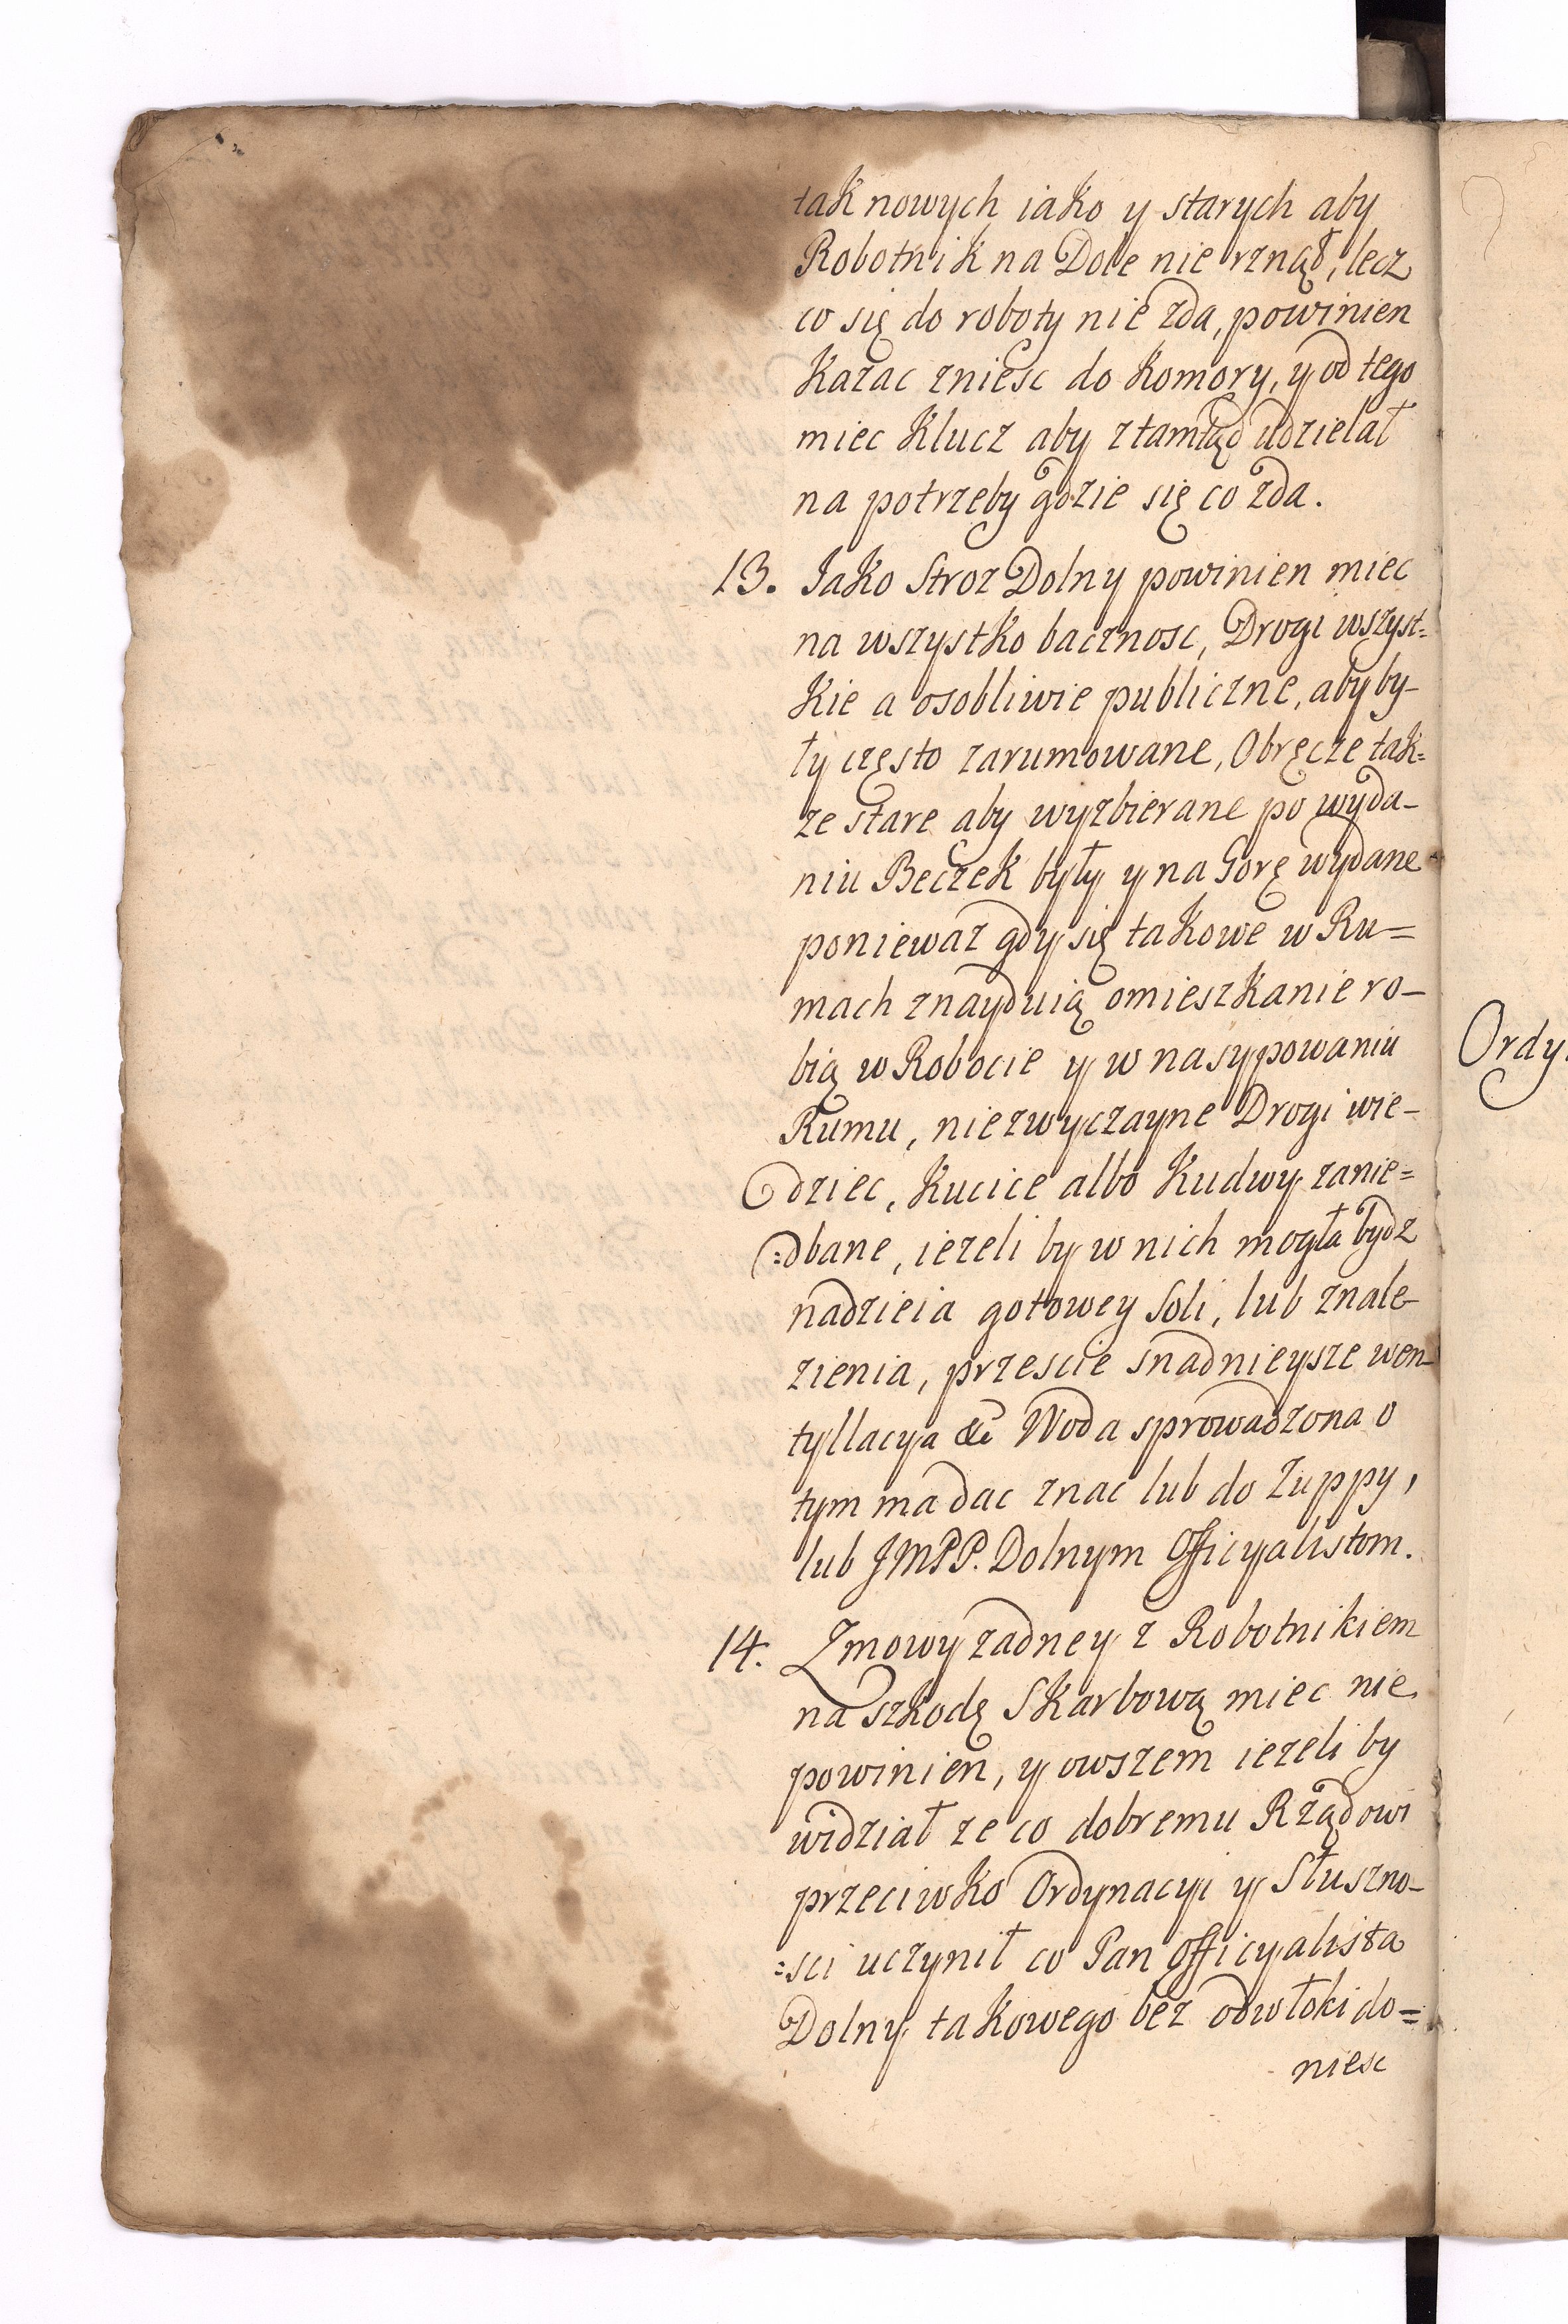 tak nowych iako y starych aby
Robotnik na Dole nie rznął, lecz
co się do roboty nie zda, powinien
Kazac zniesc do Komory, y od tego
miec Klucz aby ztamtąd udzielał
na potrzeby gdzie się co zda.
13. Jako Stroz Dolny powinien miec
na wszystko bacznosc, Drogi wszyst=
Kie a osobliwie publiczne, aby by-
ły często zarumowane, Obręcze tak=
ze stare aby wyzbierane po wyda-
niu Beczek były y na Gorę wydane
poniewaz gdy się takowe w Ru=
mach znayduią omieszkanie ro-
bią w Robocie y w nasypowaniu
Rumu, niezwyczayne Drogi wie-
dziec, Kucice albo Kudwy zanie=
:dbane, iezeli by w nich mogła bydz
nadzieia gotowey Soli, lub znale-
zienia, przescie snadnieysze wen-
tyllacya &c Woda sprowadzona o
tym ma dac znac lub do Zuppy,
lub JMPP. Dolnym Officyalistom.
14. Zmowy zadney z Robotnikiem
na szkodę Skarbową miec nie
powinien, y owszem iezeli by
widział ze co dobremu Rządowi
przeciwko Ordynacyi y Słuszno-
:sci uczynił co Pan Officyalista
Dolny takowego bez odwłoki do=
niesc
Ordy